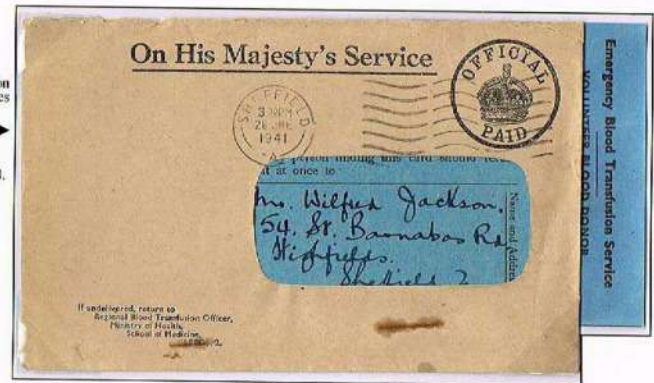 on
es
d.
On His Majesty's Service
OFFICIAL
PAID
SHEFFIELD
1941
A
person finding this card should
it at once to
Mr. Wilfred Jackson.
54. St. Barnabas Rd
Highfields.
Sheffield 2
Name and Address
If undelivered, return to
Regional Blood Transfusion Officer,
Ministry of Health,
School of Medicine,
Emergency Blood Transfusion Service
VOLUNTEER BLOOD DONOR